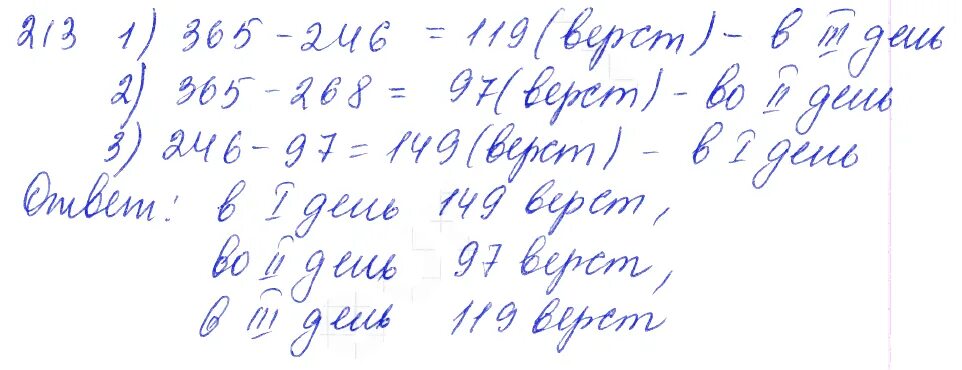 213 1) 365 - 246 = 119 (верст) - в III день
2) 365 - 268 = 97 (верст) - во II день
3) 246 - 97 = 149 (верст) - в I день
Ответ: в I день 149 верст,
во II день 97 верст,
в III день 119 верст